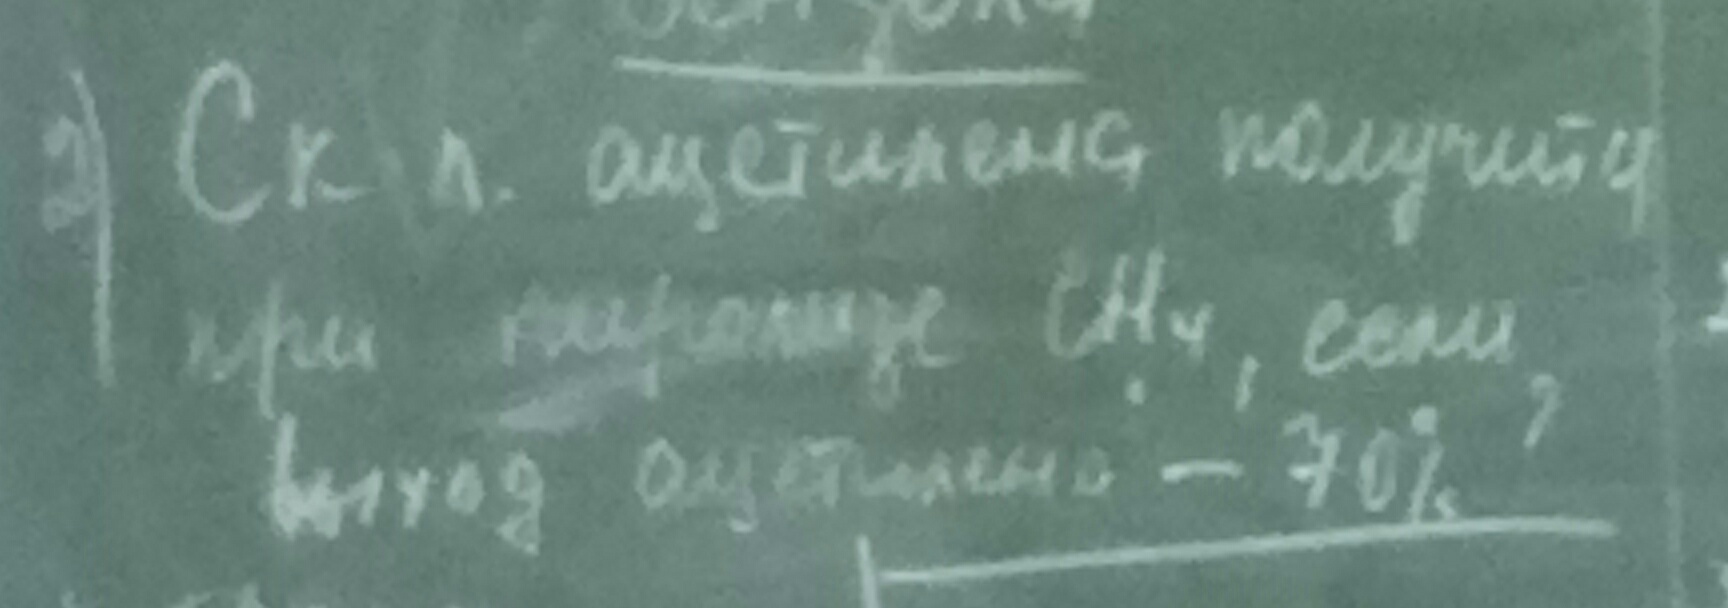 2) Ск. л. ацетилена получится
при пиролизе CH4, если
выход ацетилена – 70%?